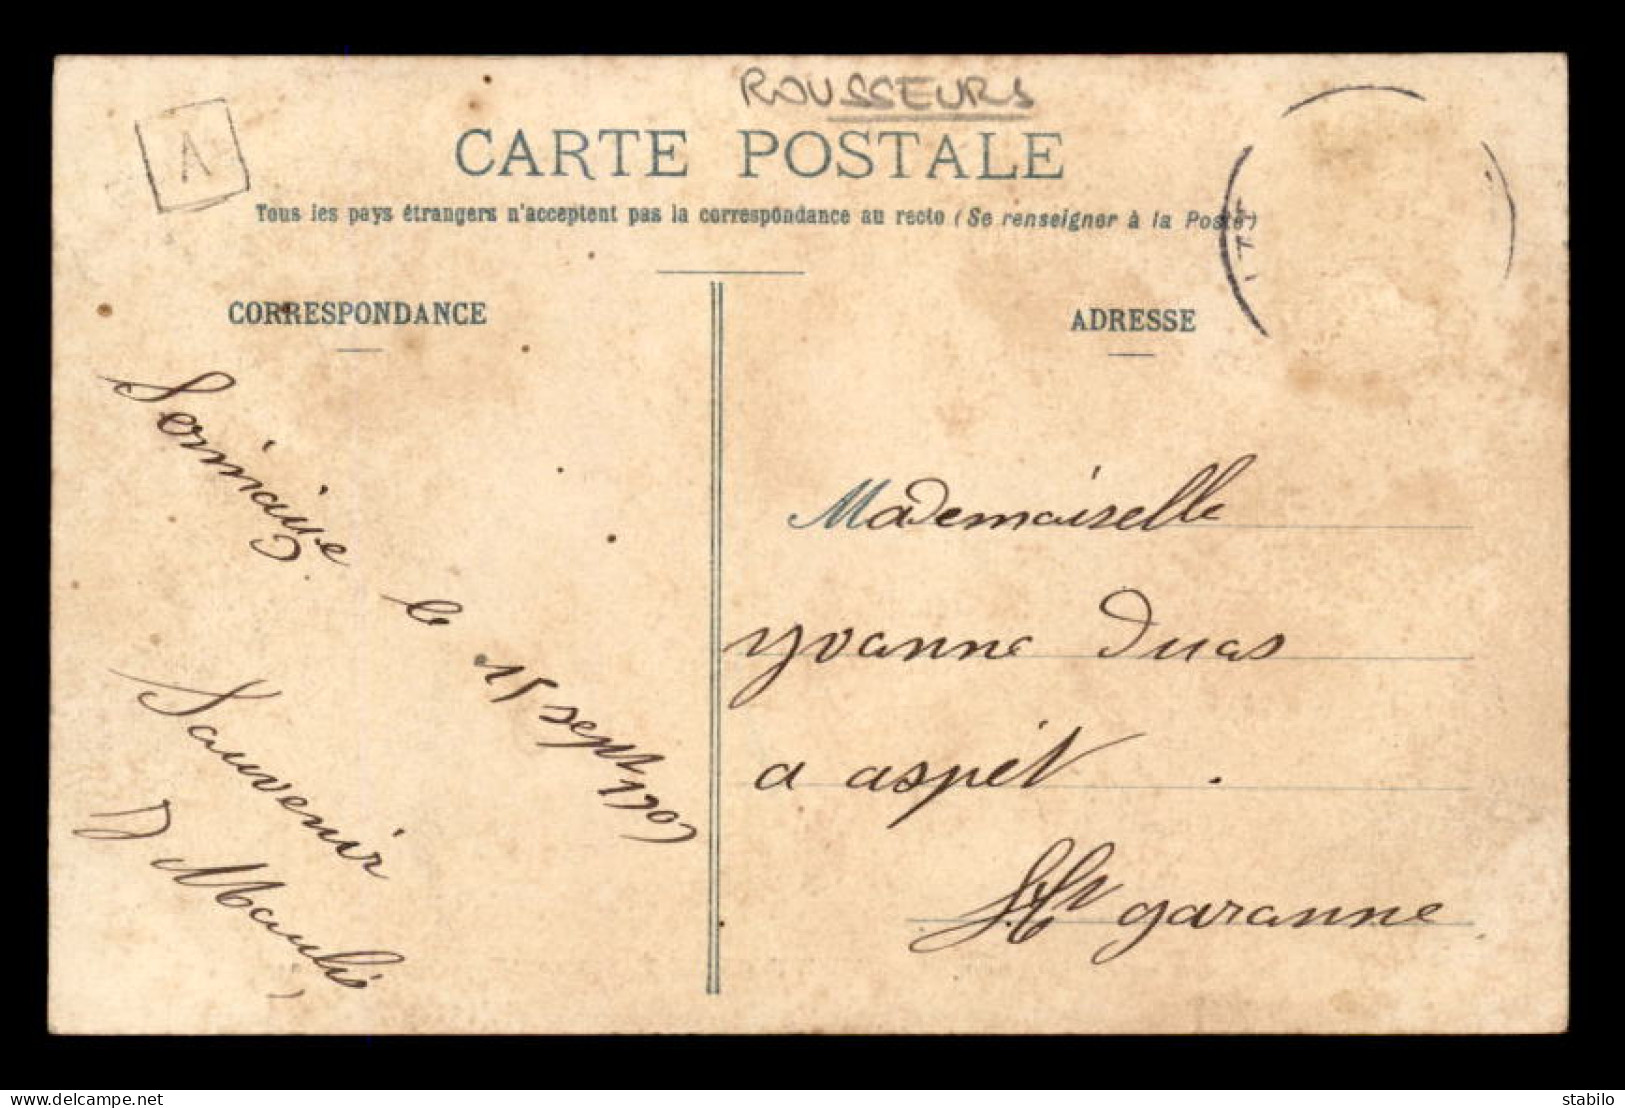 ROUSSEURS
A
CARTE POSTALE
Tous les pays étrangers n'acceptent pas la correspondance au recto (Se renseigner à la Poste)
CORRESPONDANCE
ADRESSE
le 15 sept 1907
Souvenir
Mademoiselle
yvanne
a aspèt
Hte garanne
delcampe.net
stabilo